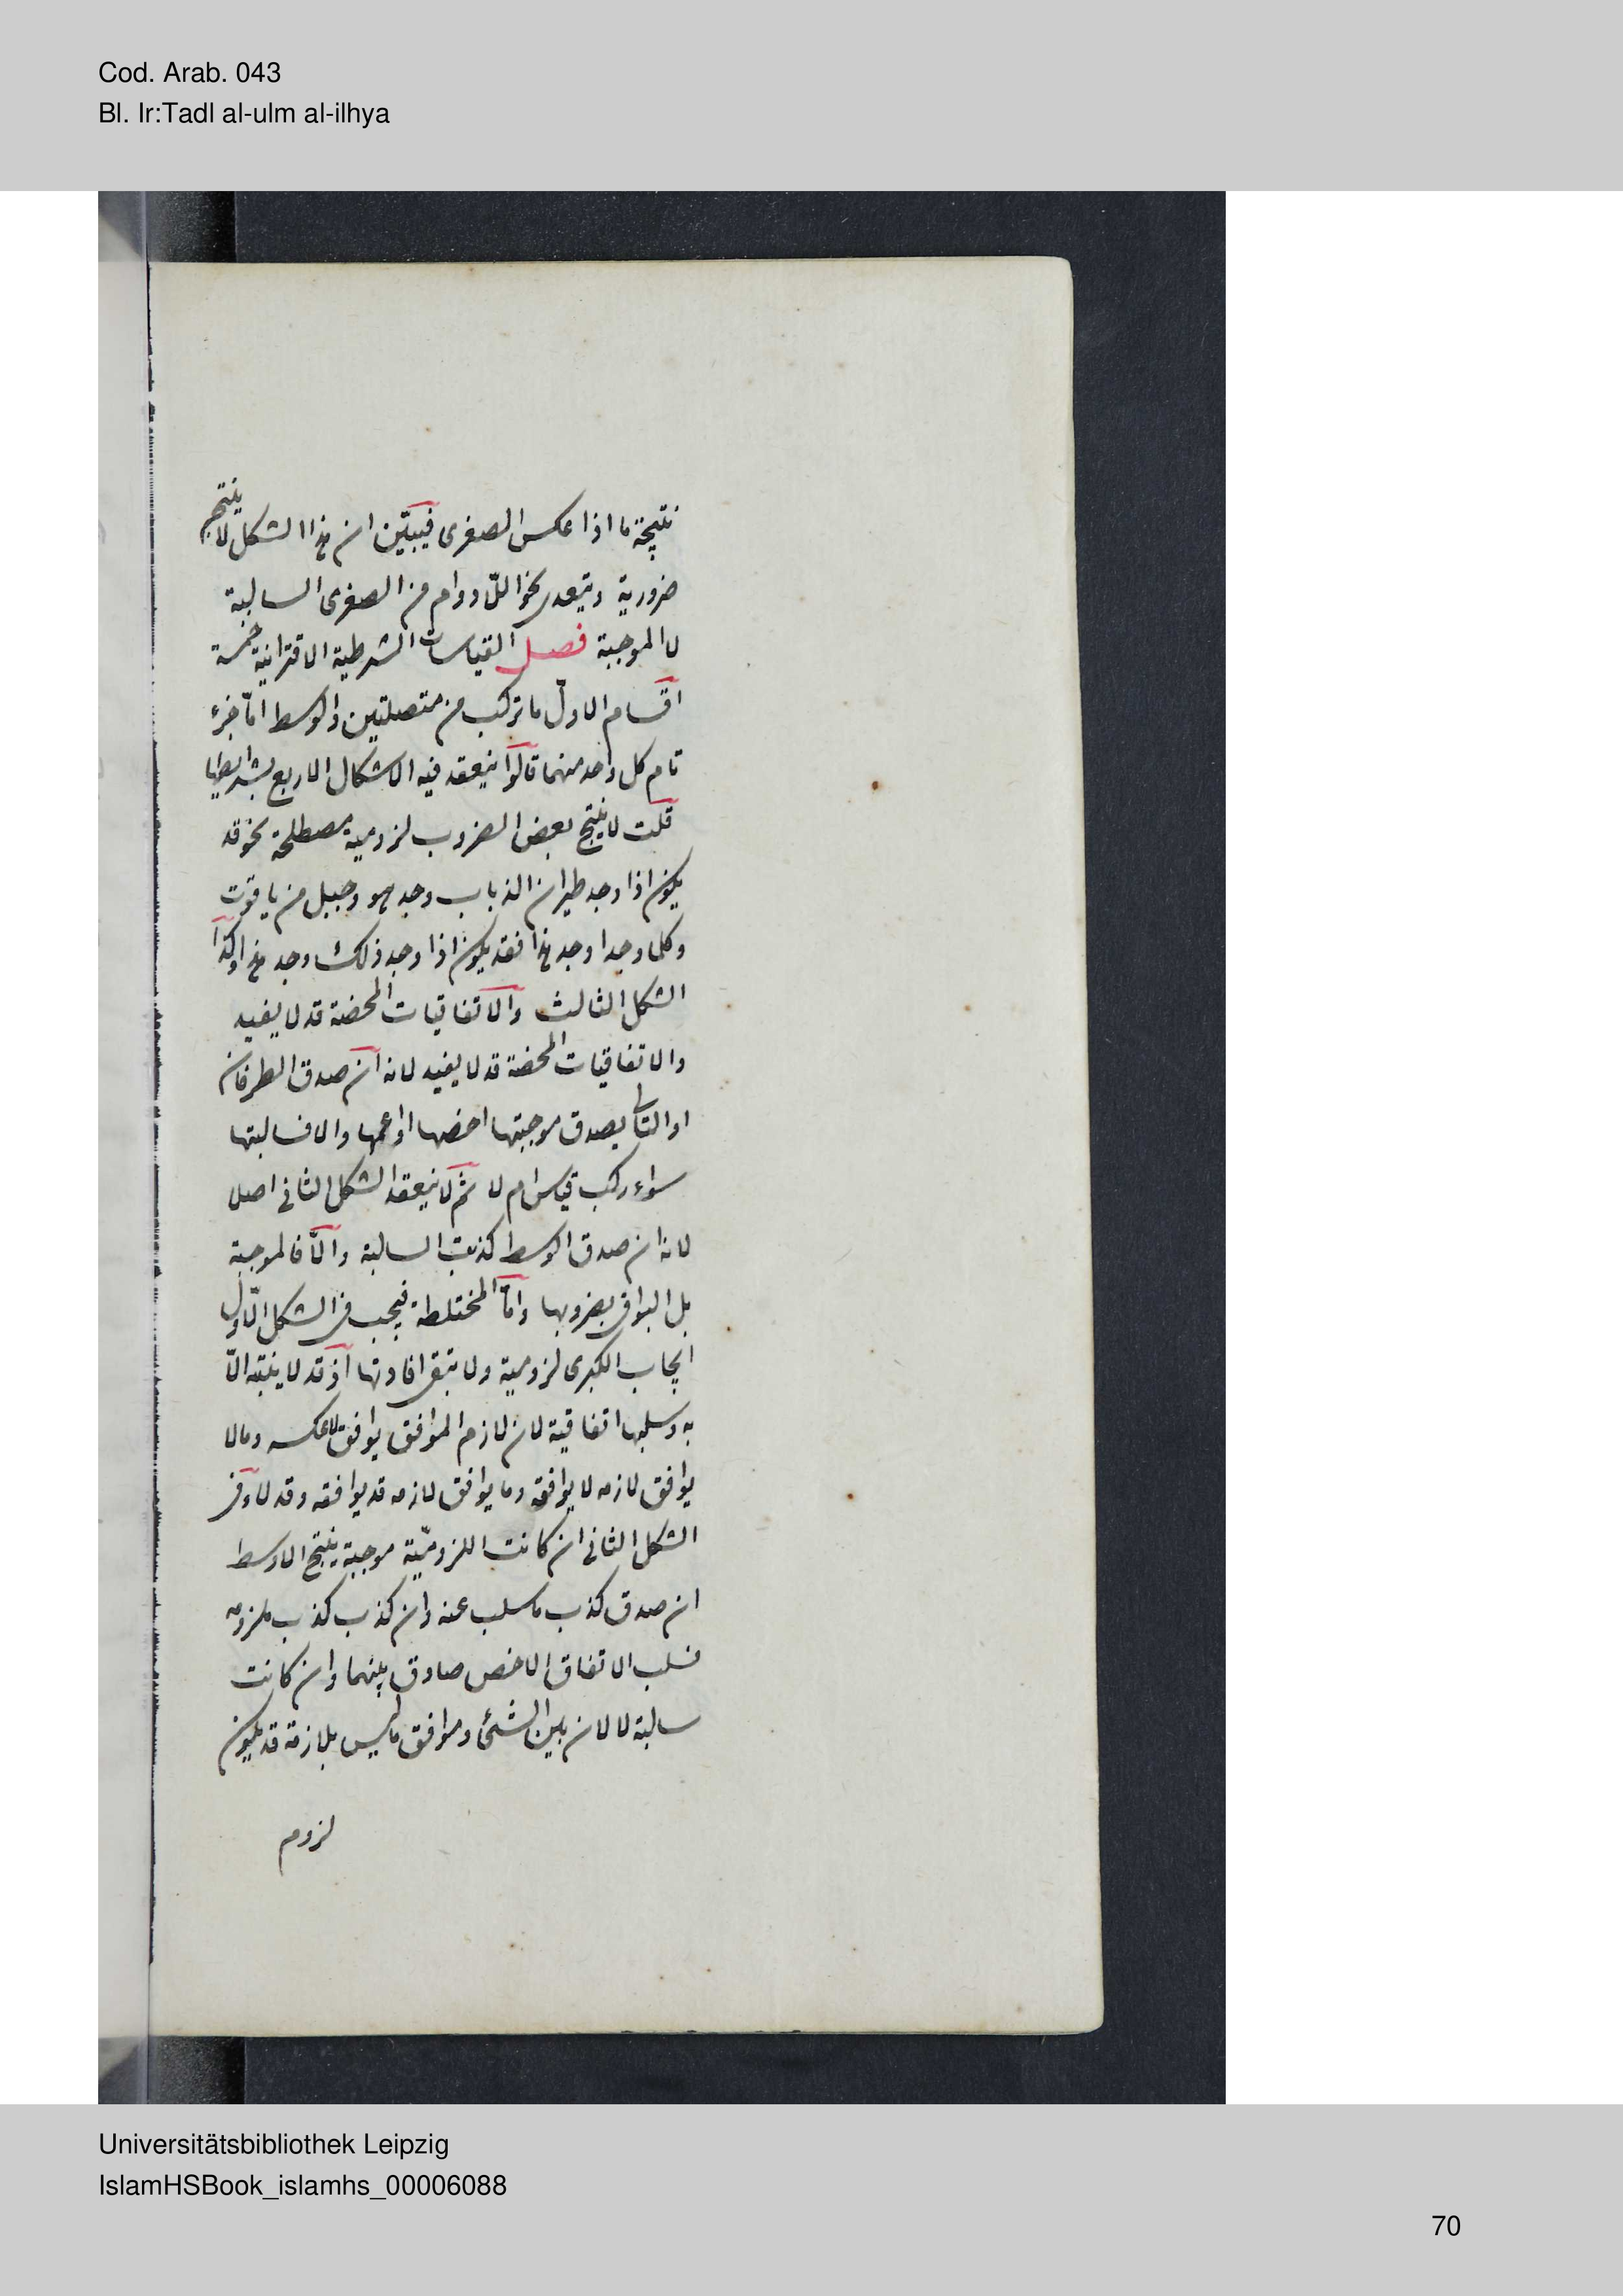 Cod. Arab. 043
Bl. Ir:Tadl al-ulm al-ilhya
نتيجة ما اذا عكس الصغرى فيبيّن ان هذا الشكل لا ينتج
ضرورية ويتعدى نحو اللّا دوام من الصغرى السالبة
لا الموجبة فصل القياسات الشرطية الاقترانية خمسة
اقسام الاول ما تركب من متصلتين والوسط امّا جزء
تام كل واحد منهما قالوا ينعقد فيه الاشكال الاربع بشرايطها
قلت لا ينتج بعض الضروب لزومية مصطلحة نحو قد
يكون اذا وجد طيران الذباب وجد هو وجبل من ياقوت
وكلما وجدا وجد هذا فقد يكون اذا وجد ذلك وجد هذا وكذا
الشكل الثالث والاتفاقيات المحضة قد لا يفيد
والاتفاقيات المحضة قد لا يفيد لانه ان صدق الطرفان
او التالى يصدق موجبتها اخصها او اعمها والا فسالبتها
سواء ركب قياس ام لا ثم لا ينعقد الشكل الثانى اصلا
لانه ان صدق الوسط كذبت السالبة والّا فالموجبة
بل البواقى بضروبها وامّا المختلطة فيجب فى الشكل الاوّل
ايجاب الكبرى لزومية ولا تبقى افادتها اذ قد لا ينتبه الّا
به وسلبها اتفاقية لان لازم الموافق يوافق لا عكسه وما لا
يوافق لازمه لا يوافقه وما يوافق لازمه قد يوافقه وقد لا وفى
الشكل الثانى ان كانت اللزوميّة موجبة ينتج الاوسط
ان صدق كذب ما سلب عنه وان كذب كذب ملزومه
فسلب الاتفاق الاخص صادق بينهما وان كانت
سالبة لا لان بين الشئ وموافق ما ليس بلازمه قد يكون
لزوم
Universitätsbibliothek Leipzig
IslamHSBook_islamhs_00006088
70